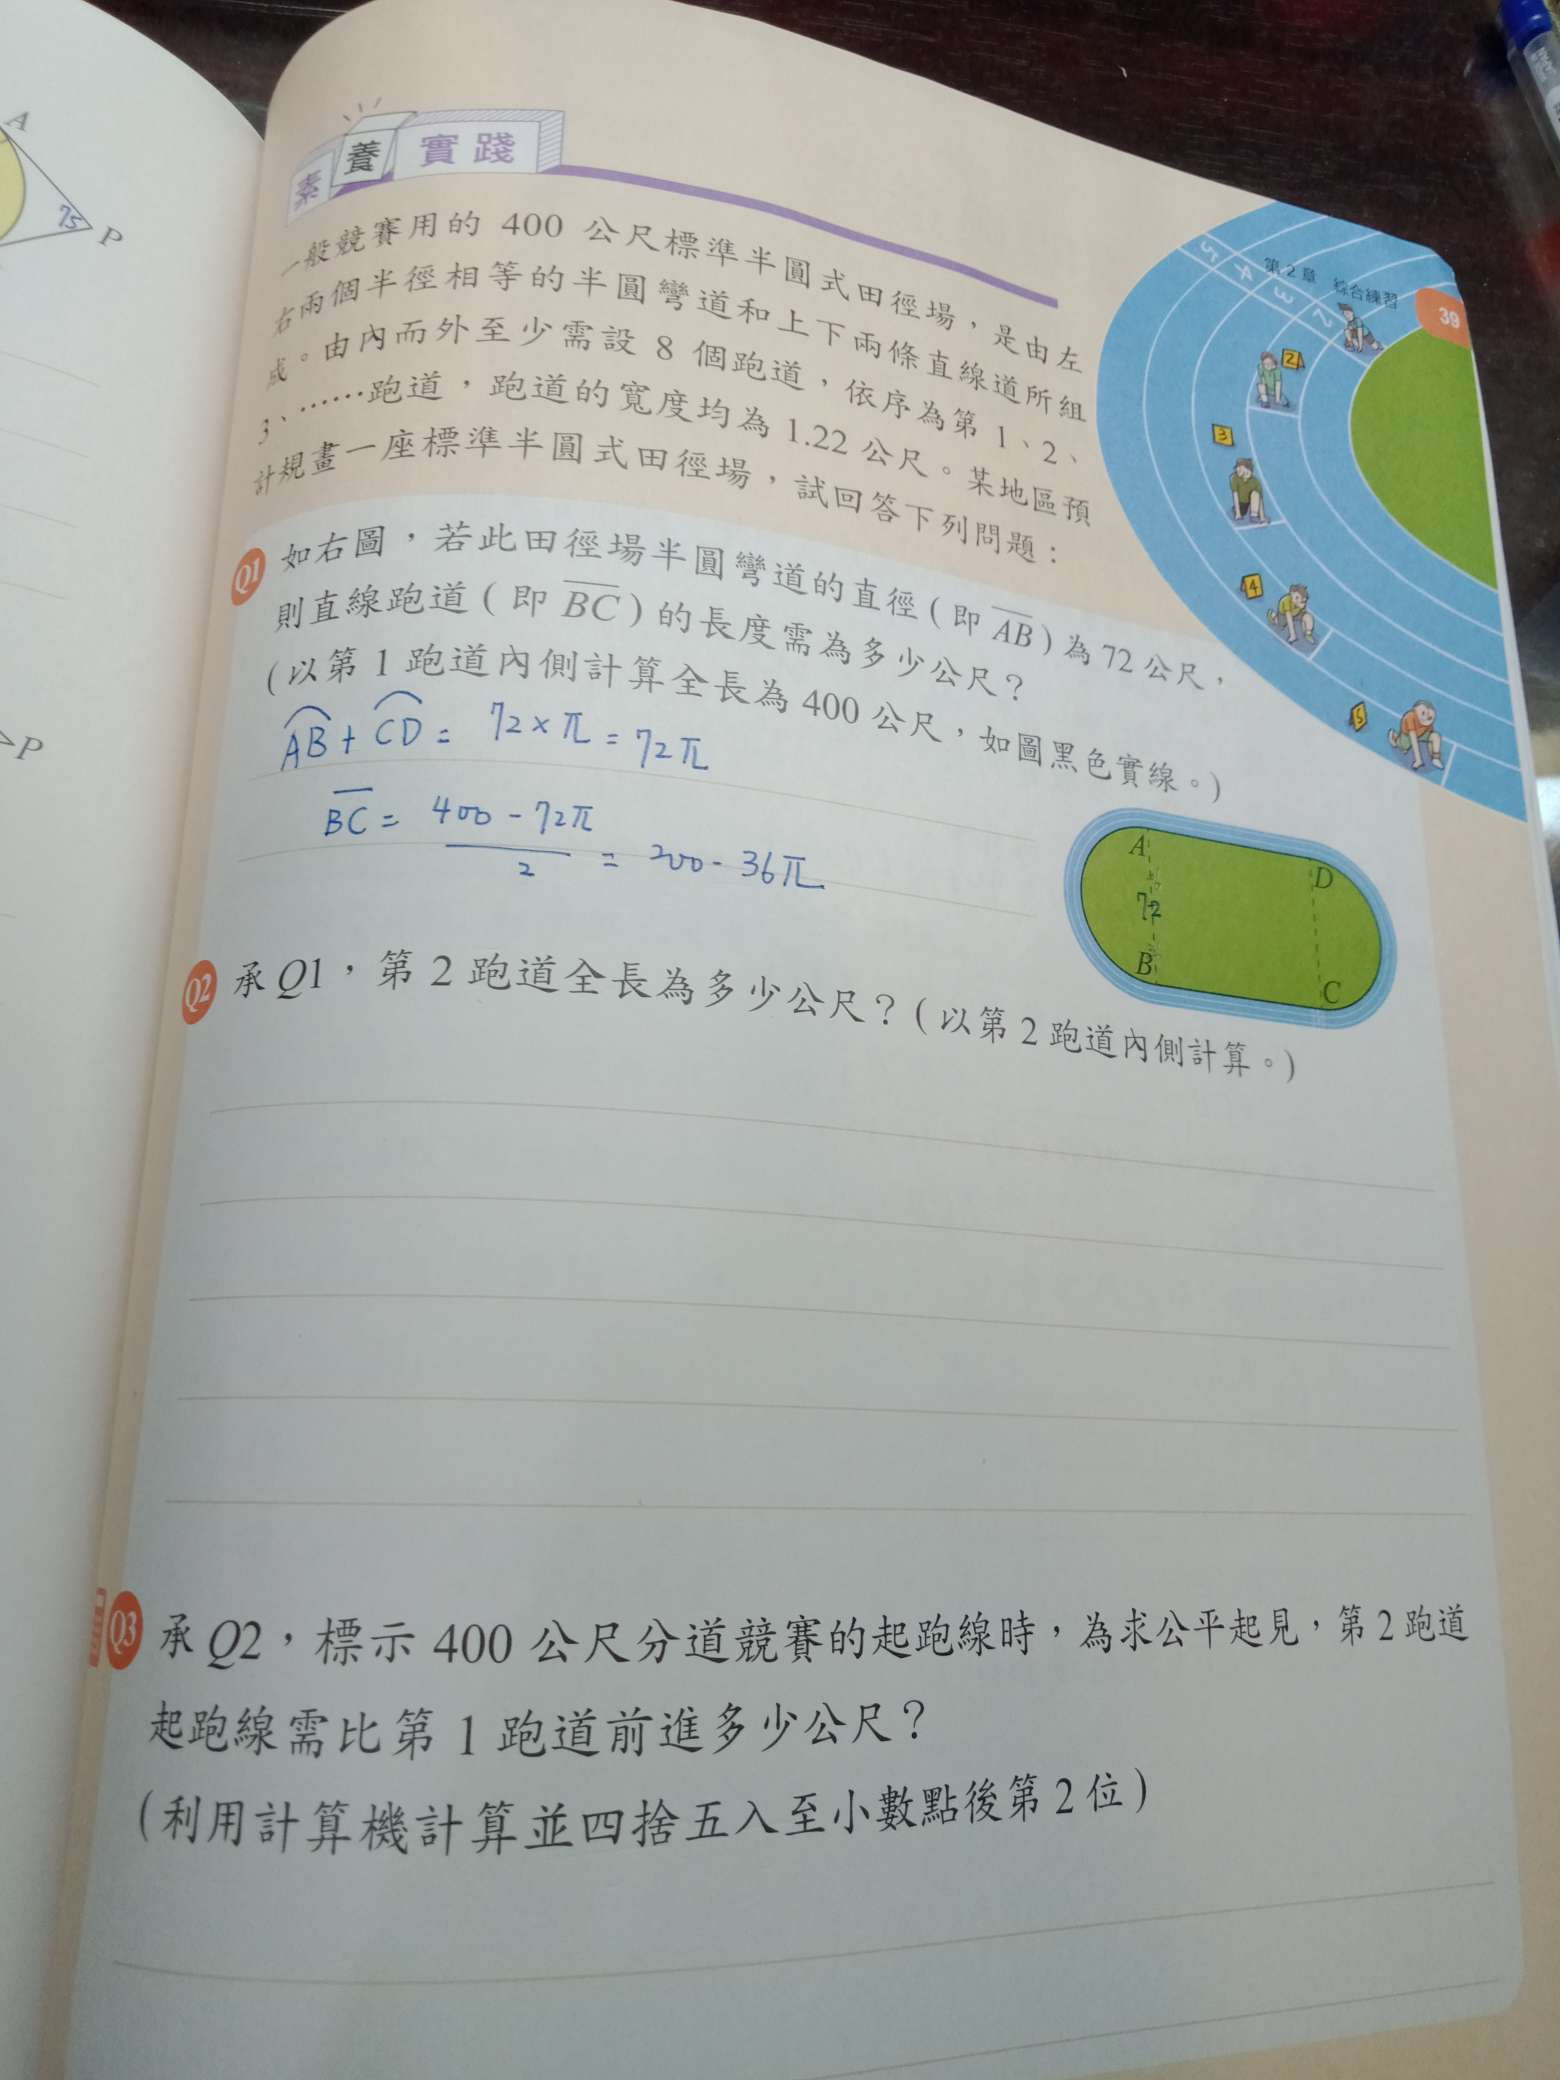 A
75
P
P
素養實踐
第2章 綜合練習
39
一般競賽用的 400 公尺標準半圓式田徑場，是由左
右兩個半徑相等的半圓彎道和上下兩條直線道所組
成。由內而外至少需設 8 個跑道，依序為第 1、2、
3、……跑道，跑道的寬度均為 1.22 公尺。某地區預
計規畫一座標準半圓式田徑場，試回答下列問題：
5 4 3 2
2
3
4
5
Q1 如右圖，若此田徑場半圓彎道的直徑（即 AB）為 72 公尺，
則直線跑道（即 BC）的長度需為多少公尺？
（以第 1 跑道內側計算全長為 400 公尺，如圖黑色實線。）
AB + CD = 72 × π = 72π
BC = (400 - 72π)/2 = 200 - 36π
A
D
72
B
C
Q2 承 Q1，第 2 跑道全長為多少公尺？（以第 2 跑道內側計算。）
Q3 承 Q2，標示 400 公尺分道競賽的起跑線時，為求公平起見，第 2 跑道
起跑線需比第 1 跑道前進多少公尺？
（利用計算機計算並四捨五入至小數點後第 2 位）